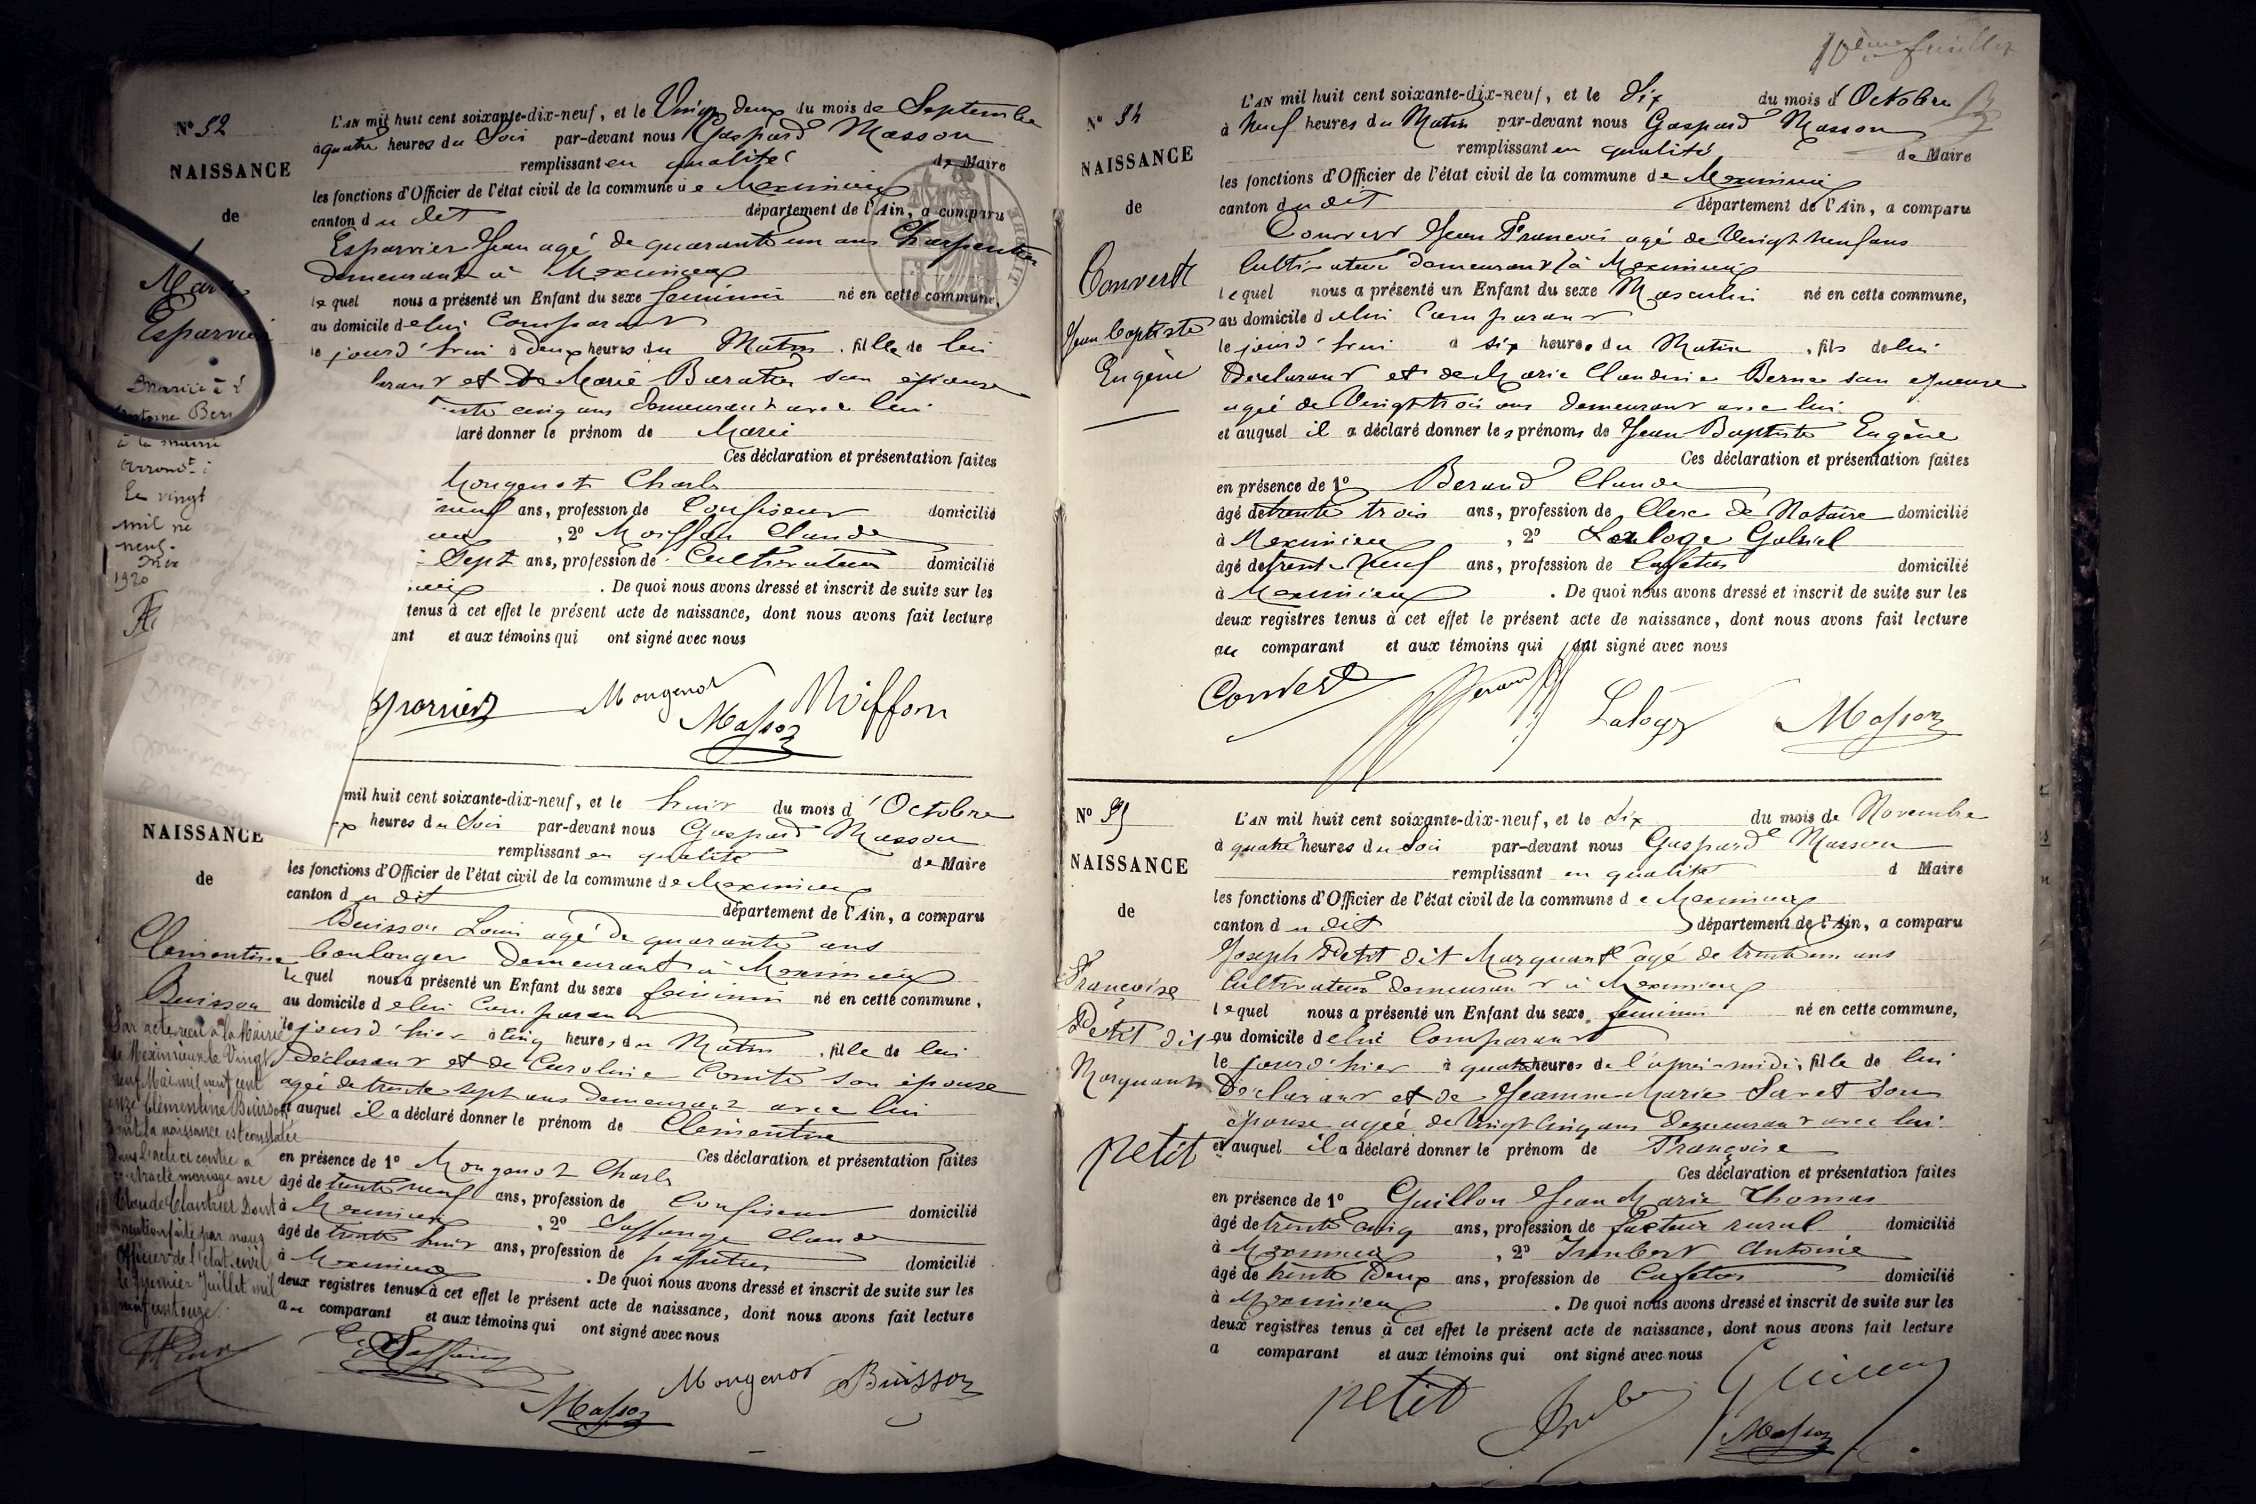 Nº 52
NAISSANCE
de
Marie
Esparvier
Mariée à
Antoine Ber
à la mairie
arrondt
Le vingt
mil ne
neuf.
1920
L'AN mil huit cent soixante-dix-neuf, et le Vingt deux du mois de Septembre
à quatre heures du Soir par-devant nous Gaspard Masson
remplissant en qualité de Maire
les fonctions d'Officier de l'état civil de la commune de Meximieux
canton du dit département de l'Ain, a comparu
Esparvier Jean agé de quarante un ans Charpentier
demeurant à Meximieux
lequel nous a présenté un Enfant du sexe feminin né en cette commune,
au domicile de lui Comparant
le jourd'hui à deux heures du Matin, fille de lui
larant et de Marie Baratier son épouse
ente cinq ans demeurant avec lui
laré donner le prénom de Marie
Ces déclaration et présentation faites
Mongenot Charles
neuf ans, profession de Confiseur domicilié
eux, 2º Moiffon Claude
Sept ans, profession de Cultivateur domicilié
ieux. De quoi nous avons dressé et inscrit de suite sur les
tenus à cet effet le présent acte de naissance, dont nous avons fait lecture
ant et aux témoins qui ont signé avec nous
Mongenot Moiffon
Masson
NAISSANCE
de
Clementine
Buisson
Par acte reçu à la Mairie
de Meximieux le Vingt
neuf Mai mil neuf cent
onze Clémentine Buisson
dont la naissance est constatée
dans l'acte ci contre a
contracté mariage avec
Claude Clantrier Dont
mention faite par nous
Officier de l'état civil
le premier Juillet mil
neuf cent onze.
mil huit cent soixante-dix-neuf, et le huit du mois d'Octobre
heures du Soir par-devant nous Gaspard Masson
remplissant en qualité de Maire
les fonctions d'Officier de l'état civil de la commune de Meximieux
canton du dit département de l'Ain, a comparu
Buisson Louis agé de quarante ans
boulanger demeurant à Meximieux
lequel nous a présenté un Enfant du sexe feminin né en cette commune,
au domicile de lui Comparant
le jourd'hier à Cinq heures du Matin, fille de lui
Déclarant et de Caroline Comte son épouse
agée de trente sept ans demeurant avec lui
et auquel il a déclaré donner le prénom de Clementine
Ces déclaration et présentation faites
en présence de 1º Mongenot Charles
âgé de trente neuf ans, profession de Confiseur domicilié
à Meximieux, 2º Saffange Claude
âgé de trente huit ans, profession de domicilié
à Meximieux. De quoi nous avons dressé et inscrit de suite sur les
deux registres tenus à cet effet le présent acte de naissance, dont nous avons fait lecture
au comparant et aux témoins qui ont signé avec nous
Mongenot Buisson
Masson
10ème feuillet
Nº 54
NAISSANCE
de
Convert
Jean baptiste
Eugène
L'AN mil huit cent soixante-dix-neuf, et le dix du mois d'Octobre
à Neuf heures du Matin par-devant nous Gaspard Masson
remplissant en qualité de Maire
les fonctions d'Officier de l'état civil de la commune de Meximieux
canton du dit département de l'Ain, a comparu
Convert Jean Francois agé de Vingt neuf ans
Cultivateur demeurant à Meximieux
lequel nous a présenté un Enfant du sexe Masculin né en cette commune,
au domicile de lui Comparant
le jourd'hui à six heures du Matin, fils de lui
Declarant et de Marie Claudine Berne son épouse
agée de Vingt trois ans demeurant avec lui
et auquel il a déclaré donner les prénoms de Jean Baptiste Eugène
Ces déclaration et présentation faites
en présence de 1º Beraud Claude
âgé de trente trois ans, profession de Clerc de Notaire domicilié
à Meximieux, 2º Laloge Gabriel
âgé de trente Neuf ans, profession de Caffetier domicilié
à Meximieux. De quoi nous avons dressé et inscrit de suite sur les
deux registres tenus à cet effet le présent acte de naissance, dont nous avons fait lecture
au comparant et aux témoins qui ont signé avec nous
Convert Beraud Laloge Masson
Nº 55
NAISSANCE
de
Françoise
Petit dit
Marquant
petit
L'AN mil huit cent soixante-dix-neuf, et le dix du mois de Novembre
à quatre heures du Soir par-devant nous Gaspard Masson
remplissant en qualité d Maire
les fonctions d'Officier de l'état civil de la commune de Meximieux
canton du dit département de l'Ain, a comparu
Joseph Petit dit Marquant agé de trente un ans
Cultivateur demeurant à Meximieux
lequel nous a présenté un Enfant du sexe feminin né en cette commune,
au domicile de lui Comparant
le jourd'hier à quatre heures de l'après-midi, fille de lui
Déclarant et de Jeanne Marie Savet son
épouse agée de Vingt Cinq ans demeurant avec lui
et auquel il a déclaré donner le prénom de Françoise
Ces déclaration et présentation faites
en présence de 1º Guillon Jean Marie Thomas
âgé de trente Cinq ans, profession de facteur rural domicilié
à Meximieux, 2º Imbert Antoine
âgé de trente Deux ans, profession de Cafetier domicilié
à Meximieux. De quoi nous avons dressé et inscrit de suite sur les
deux registres tenus à cet effet le présent acte de naissance, dont nous avons fait lecture
a comparant et aux témoins qui ont signé avec nous
petit Guillon
Masson